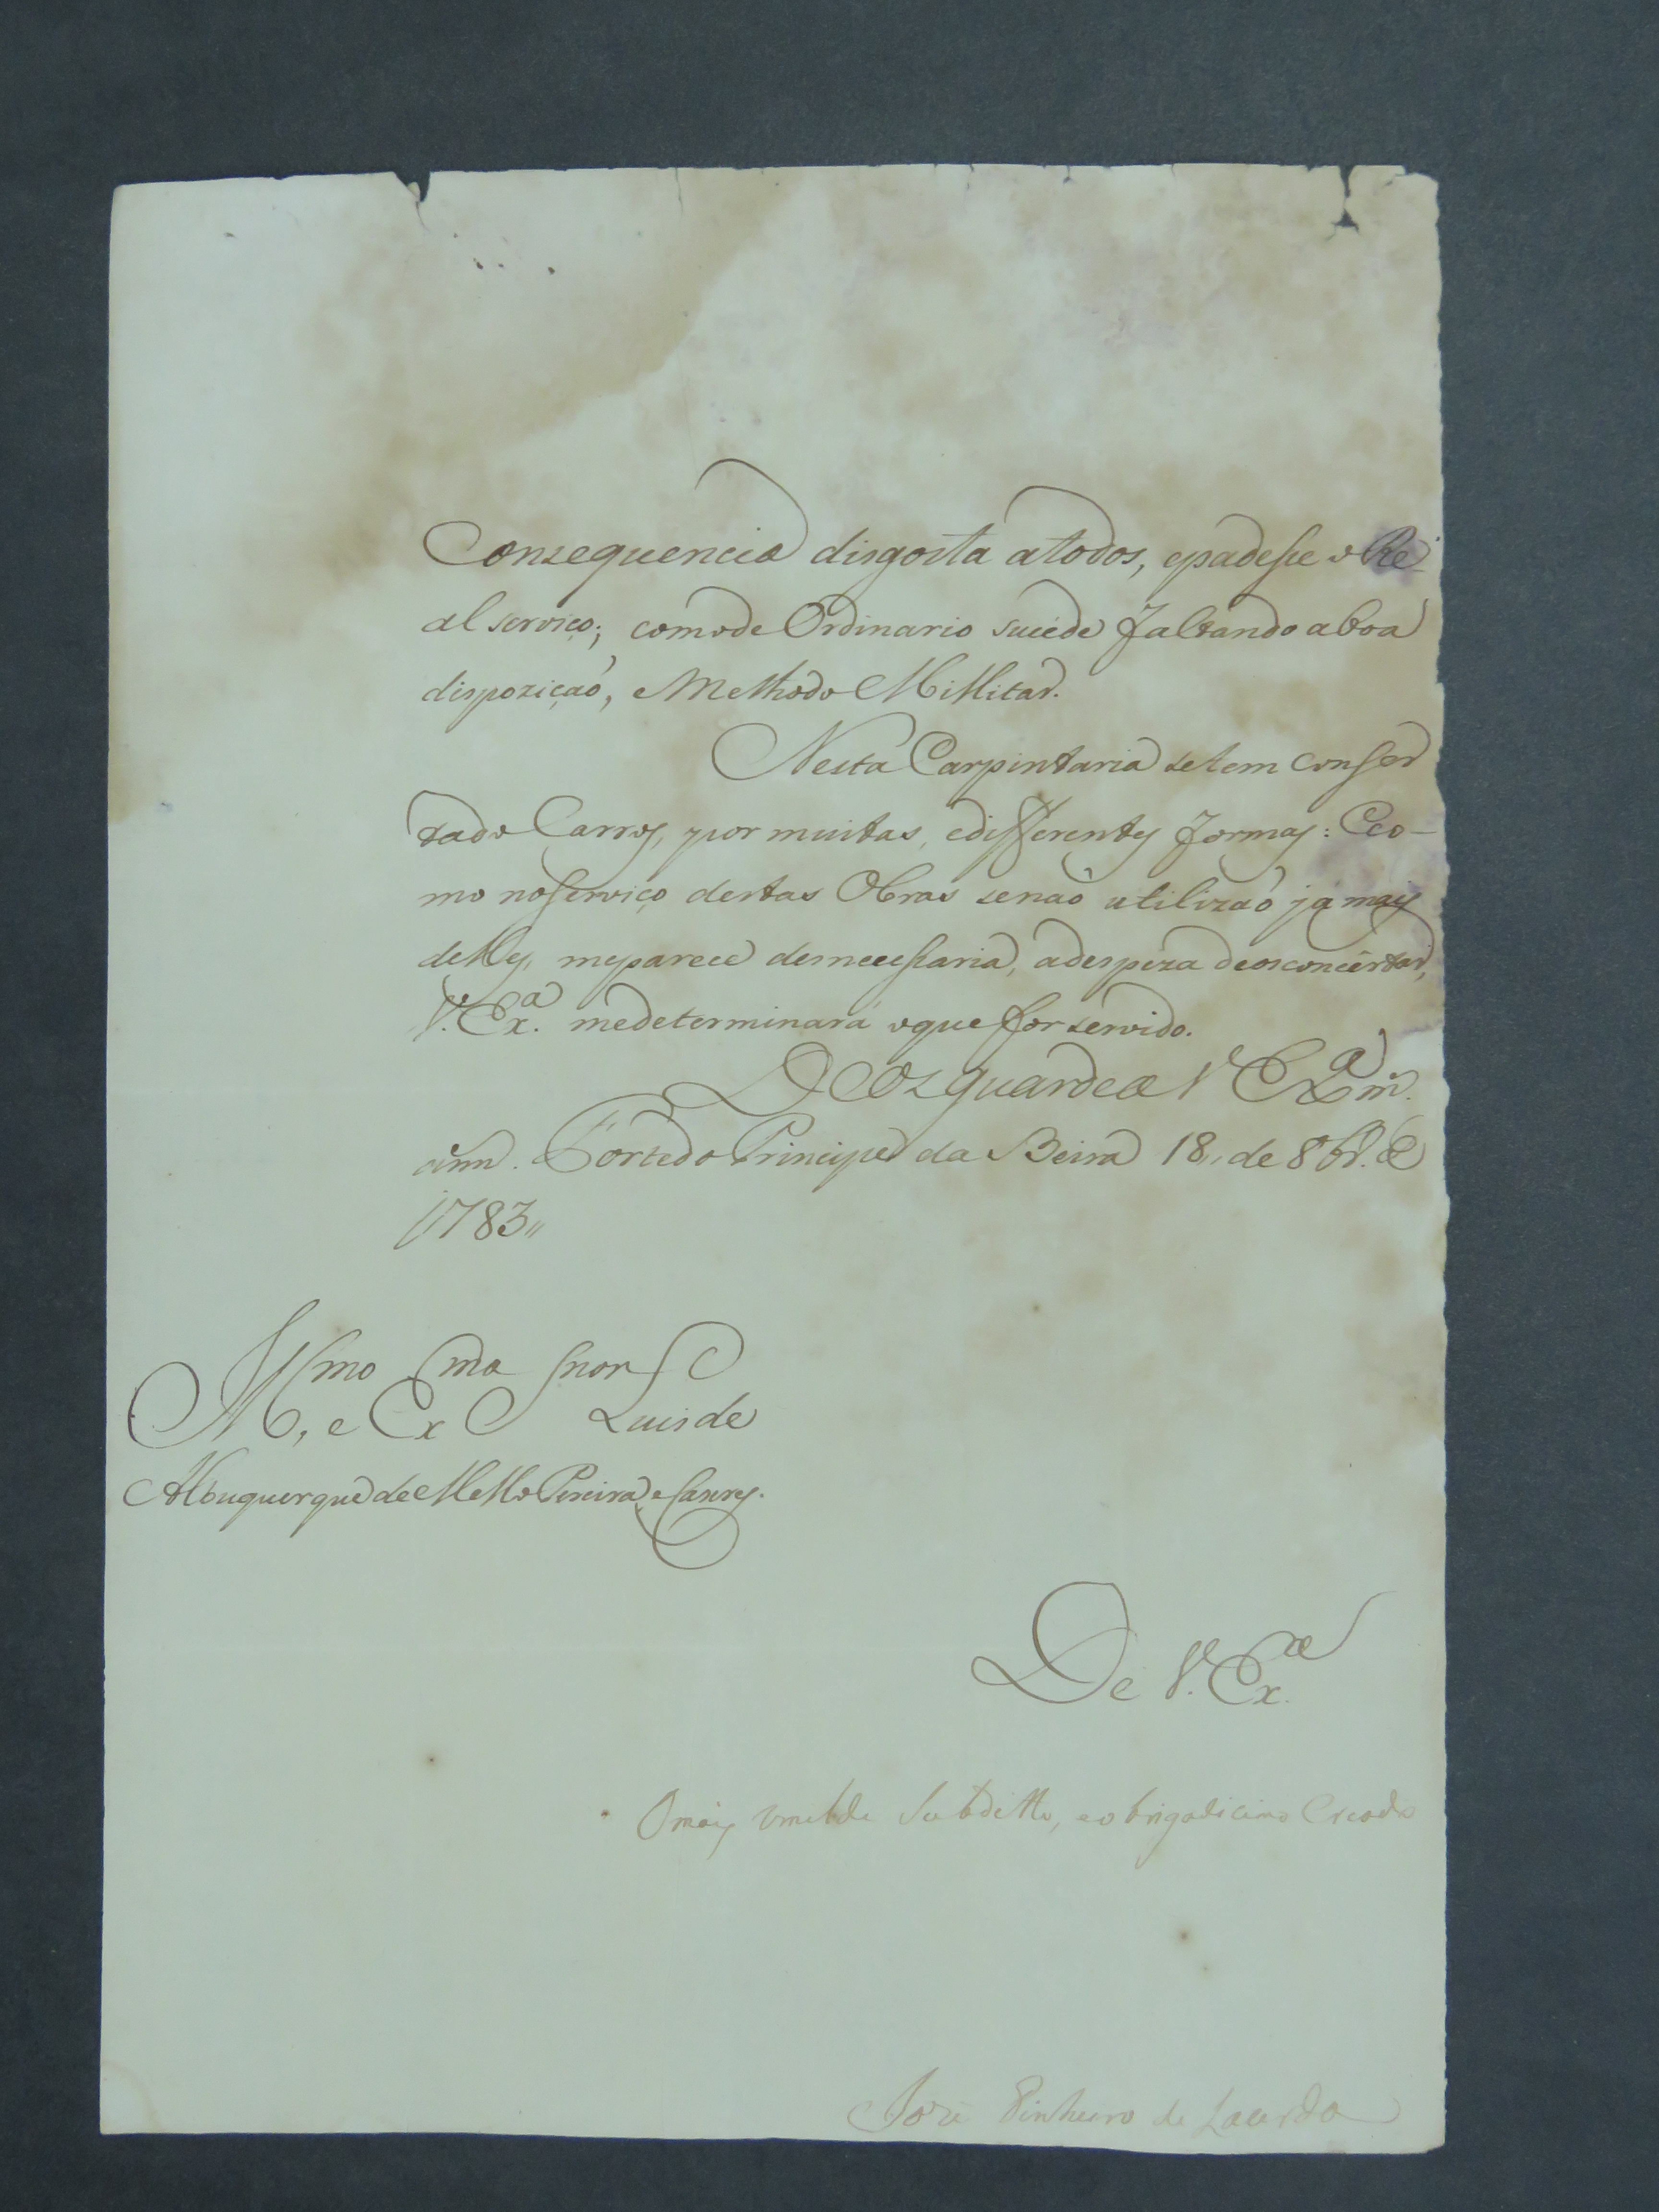 Consequencia disgosta atodos, epadesse o Re
al serviço; comode Ordinario sucede faltando aboa
dispoziçaõ, eMethodo Millitar.
Nesta Carpintaria setem conser
tado Carros, por muitas, edifferentes formas: Eco-
mo noserviço destas Obras senaõ utilizaõ ja mais
delles, meparece desnecessaria, adespeza deosconcertar,
V. Ex.ª medeterminará oque for servido.
Deos guardea V Ex.ª m.
ann. Forte do Principe da Beira 18,, de 8br.º de
1783,,
Ill.mo, e Ex.mo Snor Luis de
Albuquerque de Mello Pereira, e Caceres.
De V. Ex.ª
O mais umilde Subditto, eobrigadicimo Creado
Joze Pinheiro de Lacerda